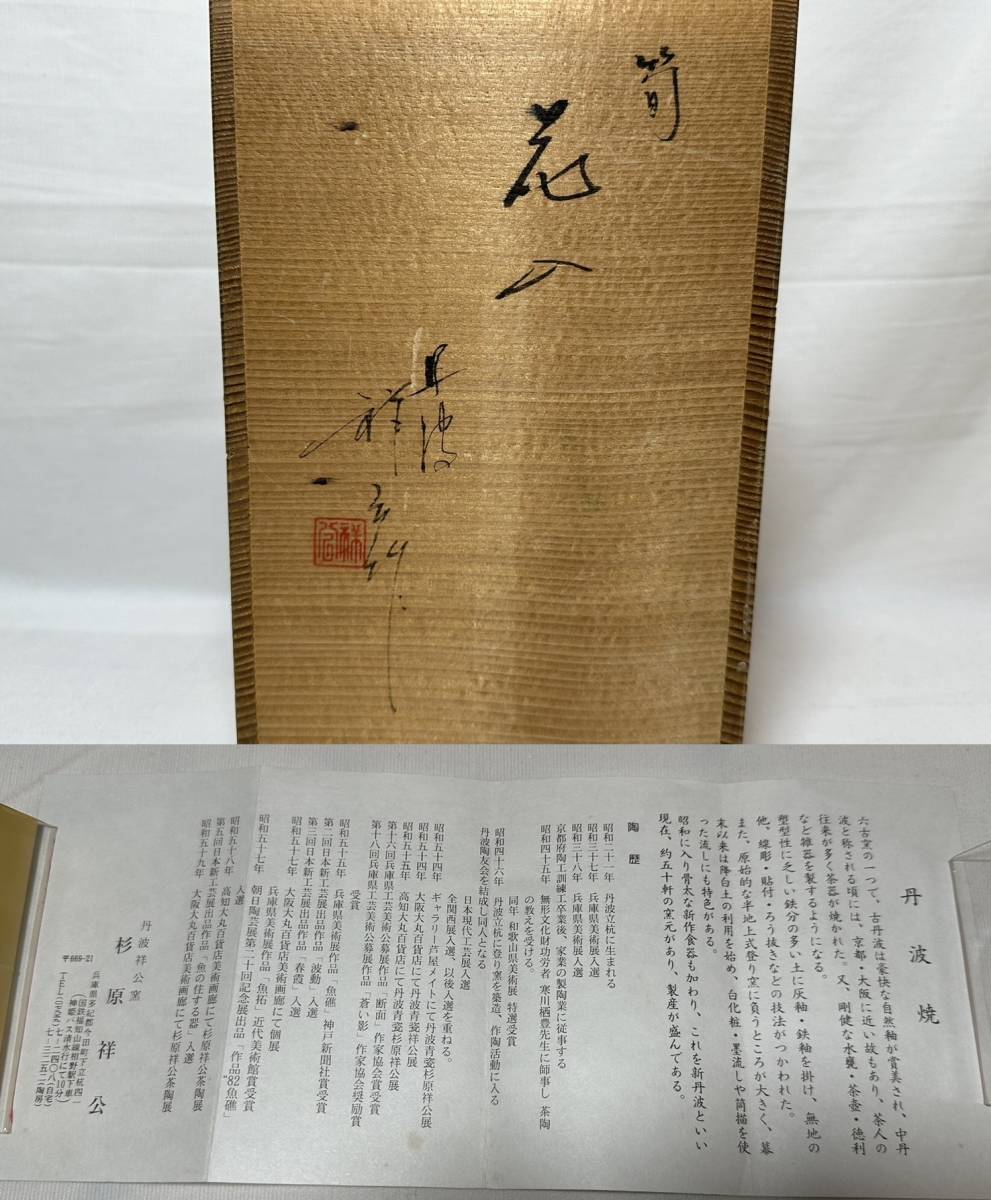 筍
花入
丹波
祥公作
祥公
丹波焼
六古窯の一つで、古丹波は豪快な自然釉が賞美され、中丹
波と称される頃には、京都・大阪に近い故もあり、茶人の
往来が多く茶器が焼かれた。又、剛健な水甕・茶壺・徳利
など雑器を製するようになる。
塑型性に乏しい鉄分の多い土に灰釉・鉄釉を掛け、無地の
他、線彫・貼付・ろう抜きなどの技法がつかわれた。
また、原始的な半地上式登り窯に負うところが大きく、幕
末以来は降白土の利用を始め、白化粧・墨流しや筒描を使
った流しにも特色がある。
昭和に入り骨太な新作食器も加わり、これを新丹波といい
現在、約五十軒の窯元があり、製産が盛んである。
陶歴
昭和二十一年 丹波立杭に生まれる
昭和三十七年 兵庫県美術展入選
昭和三十八年 兵庫県美術展入選
京都府陶工訓練工卒業後、家業の製陶業に従事する
昭和四十五年 無形文化財功労者 寒川栖豊先生に師事し 茶陶
の教えを受ける。
同年 和歌山県美術展 特選受賞
昭和四十六年 丹波立杭に登り窯を築造、作陶活動に入る
丹波陶友会を結成し同人となる
日本現代工芸展入選
全関西展入選、以後入選を重ねる。
昭和五十四年 ギャラリー芦屋メイトにて丹波青瓷杉原祥公展
昭和五十四年 大阪大丸百貨店にて丹波青瓷杉原祥公展
昭和五十五年 高知大丸百貨店にて丹波青瓷祥公展
第十六回兵庫県工芸美術公募展作品「断面」作家協会賞受賞
第十八回兵庫県工芸美術公募展作品「蒼い影」作家協会奨励賞
受賞
昭和五十五年 兵庫県美術展作品「魚礁」神戸新聞社賞受賞
第二回日本新工芸展出品作品「波動」入選
第三回日本新工芸展出品作品「春霞」入選
昭和五十七年 大阪大丸百貨店美術画廊にて個展
兵庫県美術展作品「魚拓」近代美術館賞受賞
昭和五十七年 朝日陶芸展第二十回記念展出品「作品82魚礁」
入選
昭和五十八年 高知大丸百貨店美術画廊にて杉原祥公茶陶展
第五回日本新工芸展出品作品「魚の住する器」入選
昭和五十九年 大阪大丸百貨店美術画廊にて杉原祥公茶陶展
丹波祥公窯
杉原祥公
〒669-21
兵庫県多紀郡今田町下立杭四一
(国鉄福知山線相野駅下車
神姫バス清水行にて10分)